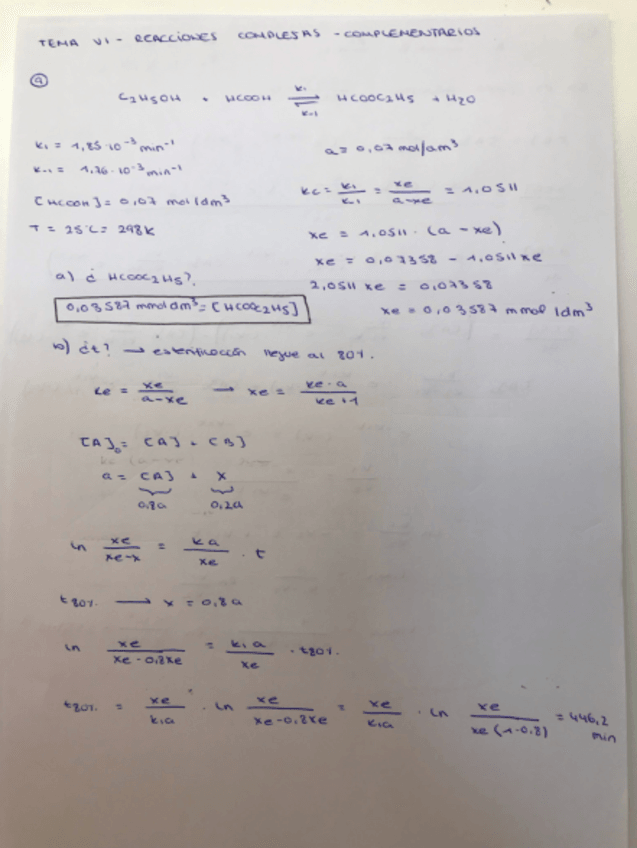 TEMA VI - REACCIONES COMPLEJAS - COMPLEMENTARIOS
9
C2H5OH + HCOOH ⇌ HCOOC2H5 + H2O
k1
k-1
k1 = 1,85·10^-3 min^-1
a = 0,07 mol/dm^3
k-1 = 1,76·10^-3 min^-1
[HCOOH] = 0,07 mol/dm^3
kc = k1/k-1 = xe/a-xe = 1,0511
T = 25°C = 298k
xe = 1,0511 · (a - xe)
xe = 0,07358 - 1,0511xe
a) ¿ HCOOC2H5?
2,0511 xe = 0,07358
0,03587 mmol dm^3 = [HCOOC2H5]
xe = 0,03587 mmol/dm^3
b) ¿t? → esterificación llegue al 80%.
ke = xe/a-xe → xe = ke·a/ke+1
[A]0 = [A] + [B]
a = [A] + X
0,8a 0,2a
ln xe/xe-x = ka/xe · t
t80% → x = 0,8a
ln xe/xe-0,8xe = k1a/xe · t80%.
t80% = xe/k1a · ln xe/xe-0,8xe = xe/k1a · ln xe/xe(1-0,8) = 446,2 min